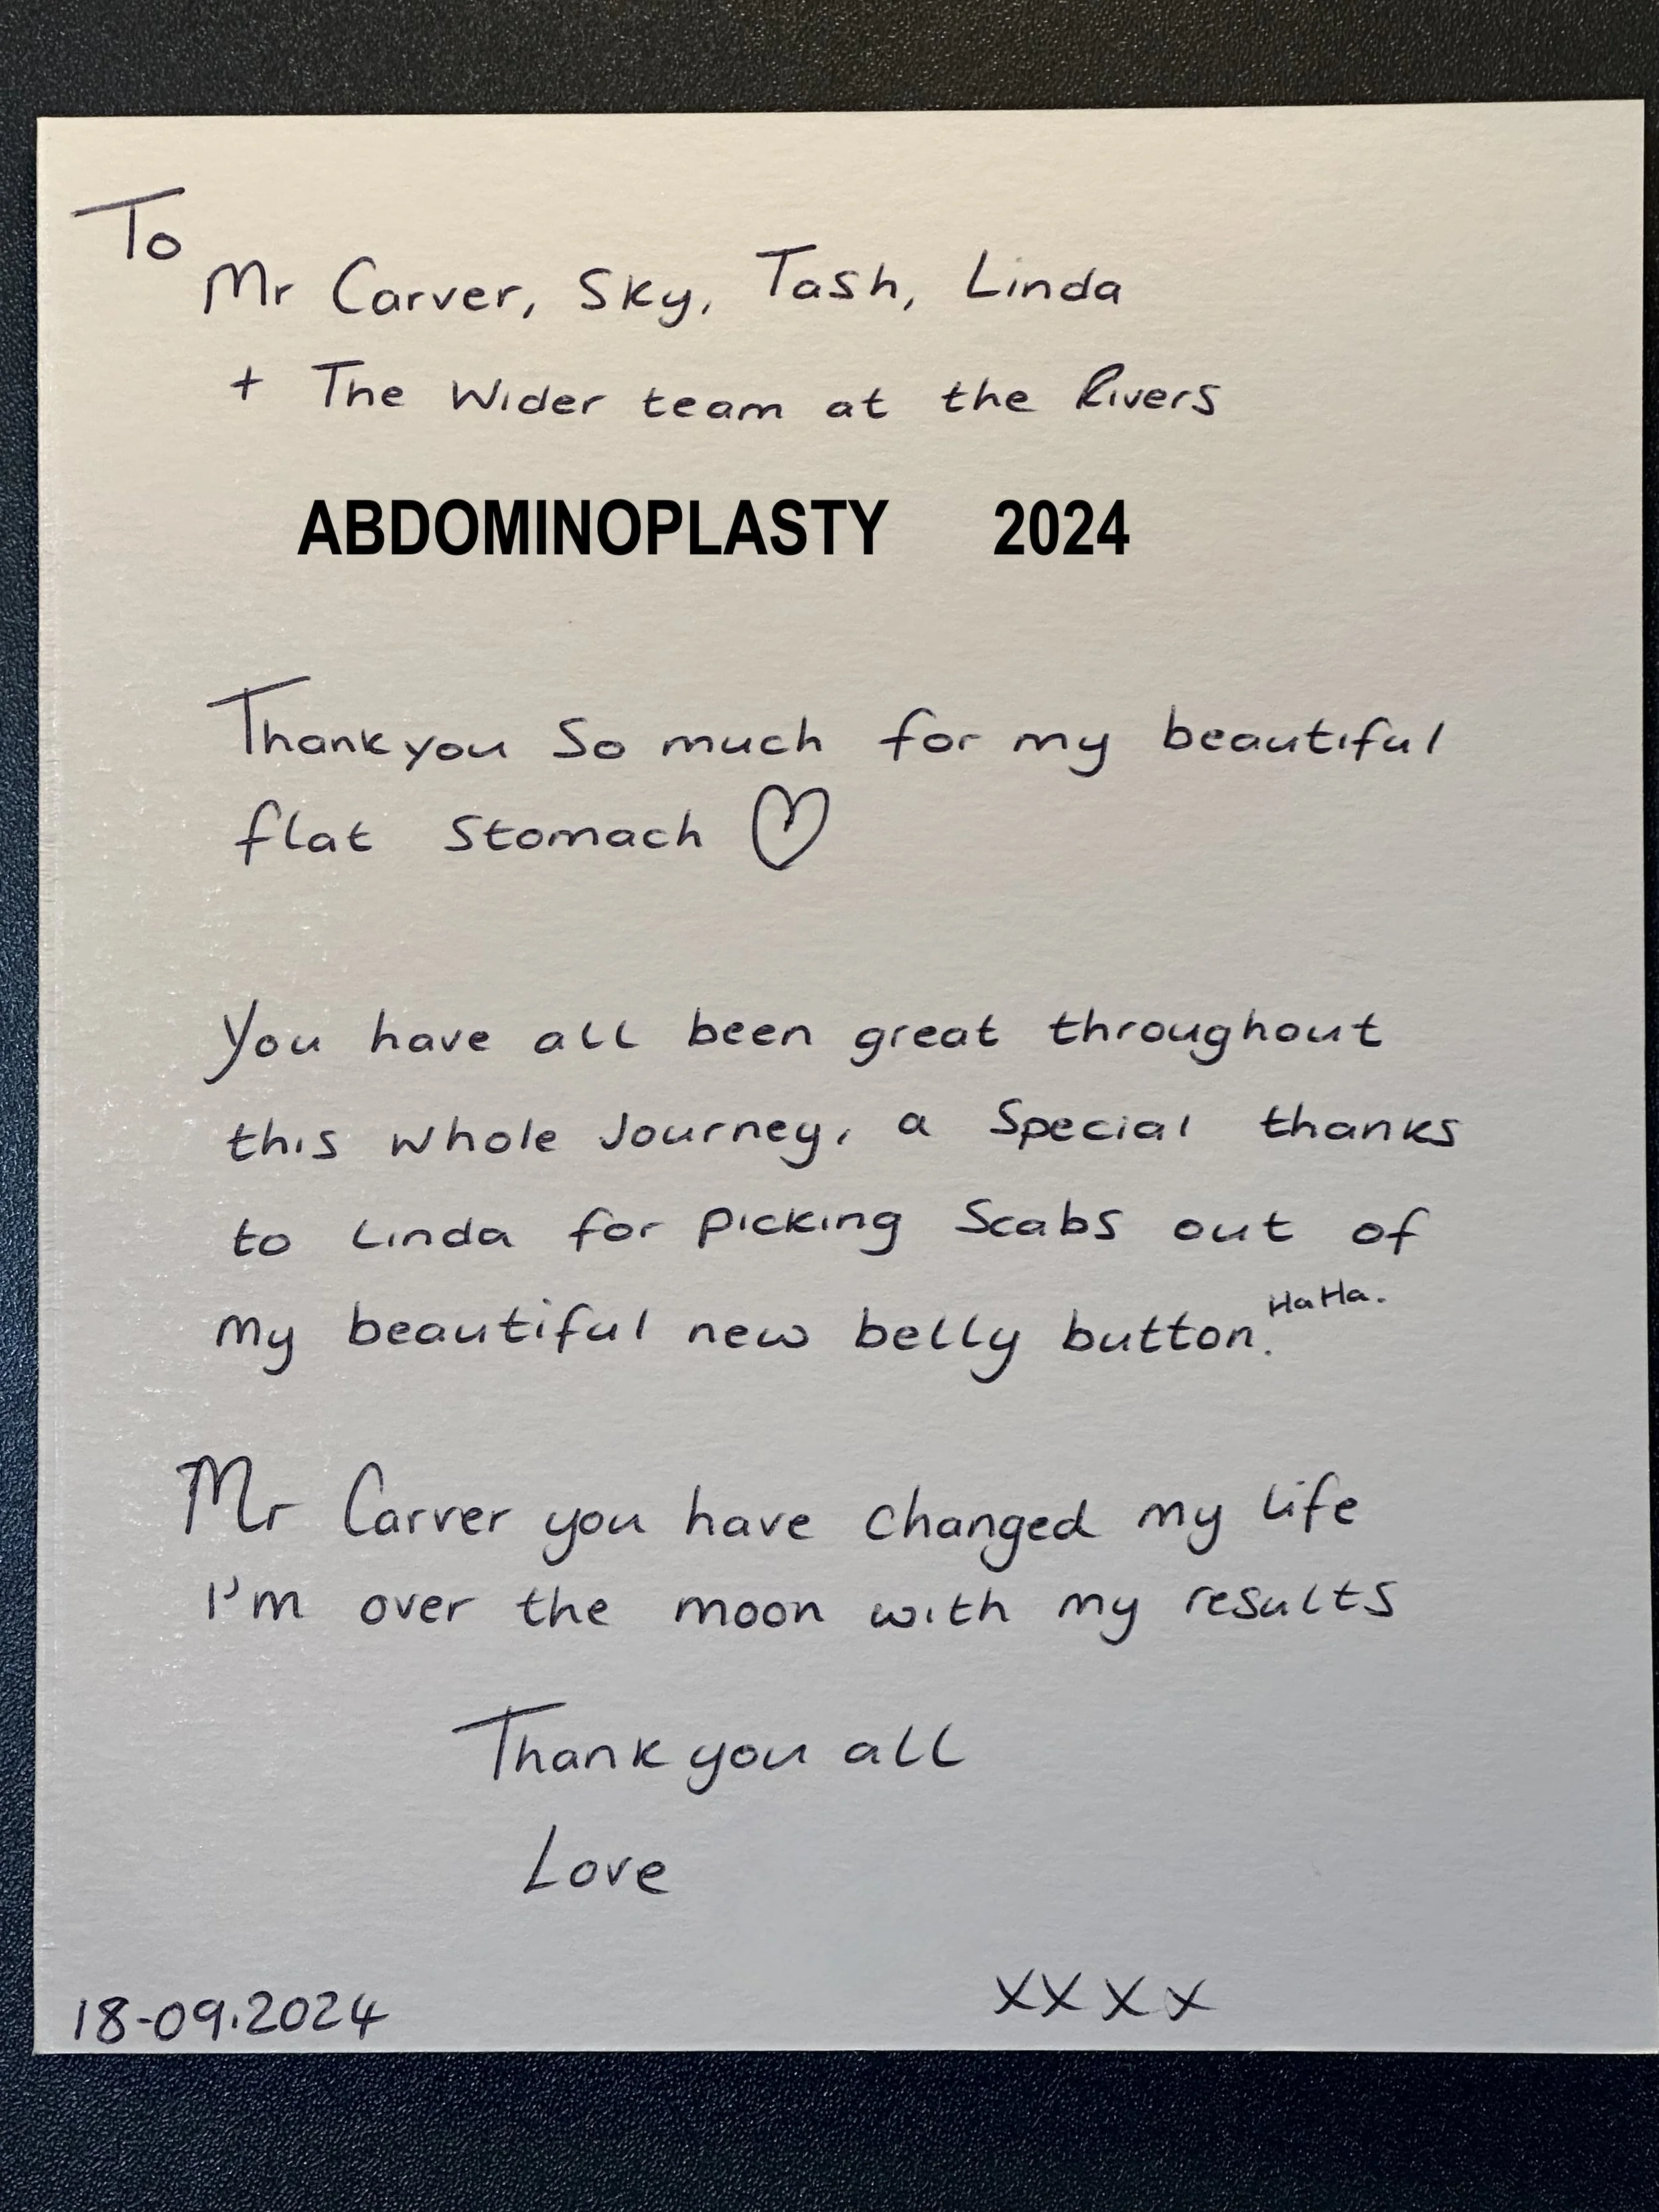 To
Mr Carver, Sky, Tash, Linda
+ The Wider team at the Rivers
ABDOMINOPLASTY 2024
Thankyou So much for my beautiful
flat Stomach ♡
You have all been great throughout
this whole Journey, a Special thanks
to Linda for picking Scabs out of
my beautiful new belly button. HaHa.
Mr Carver you have changed my life
I'm over the moon with my results
Thank you all
Love
xxxx
18-09.2024